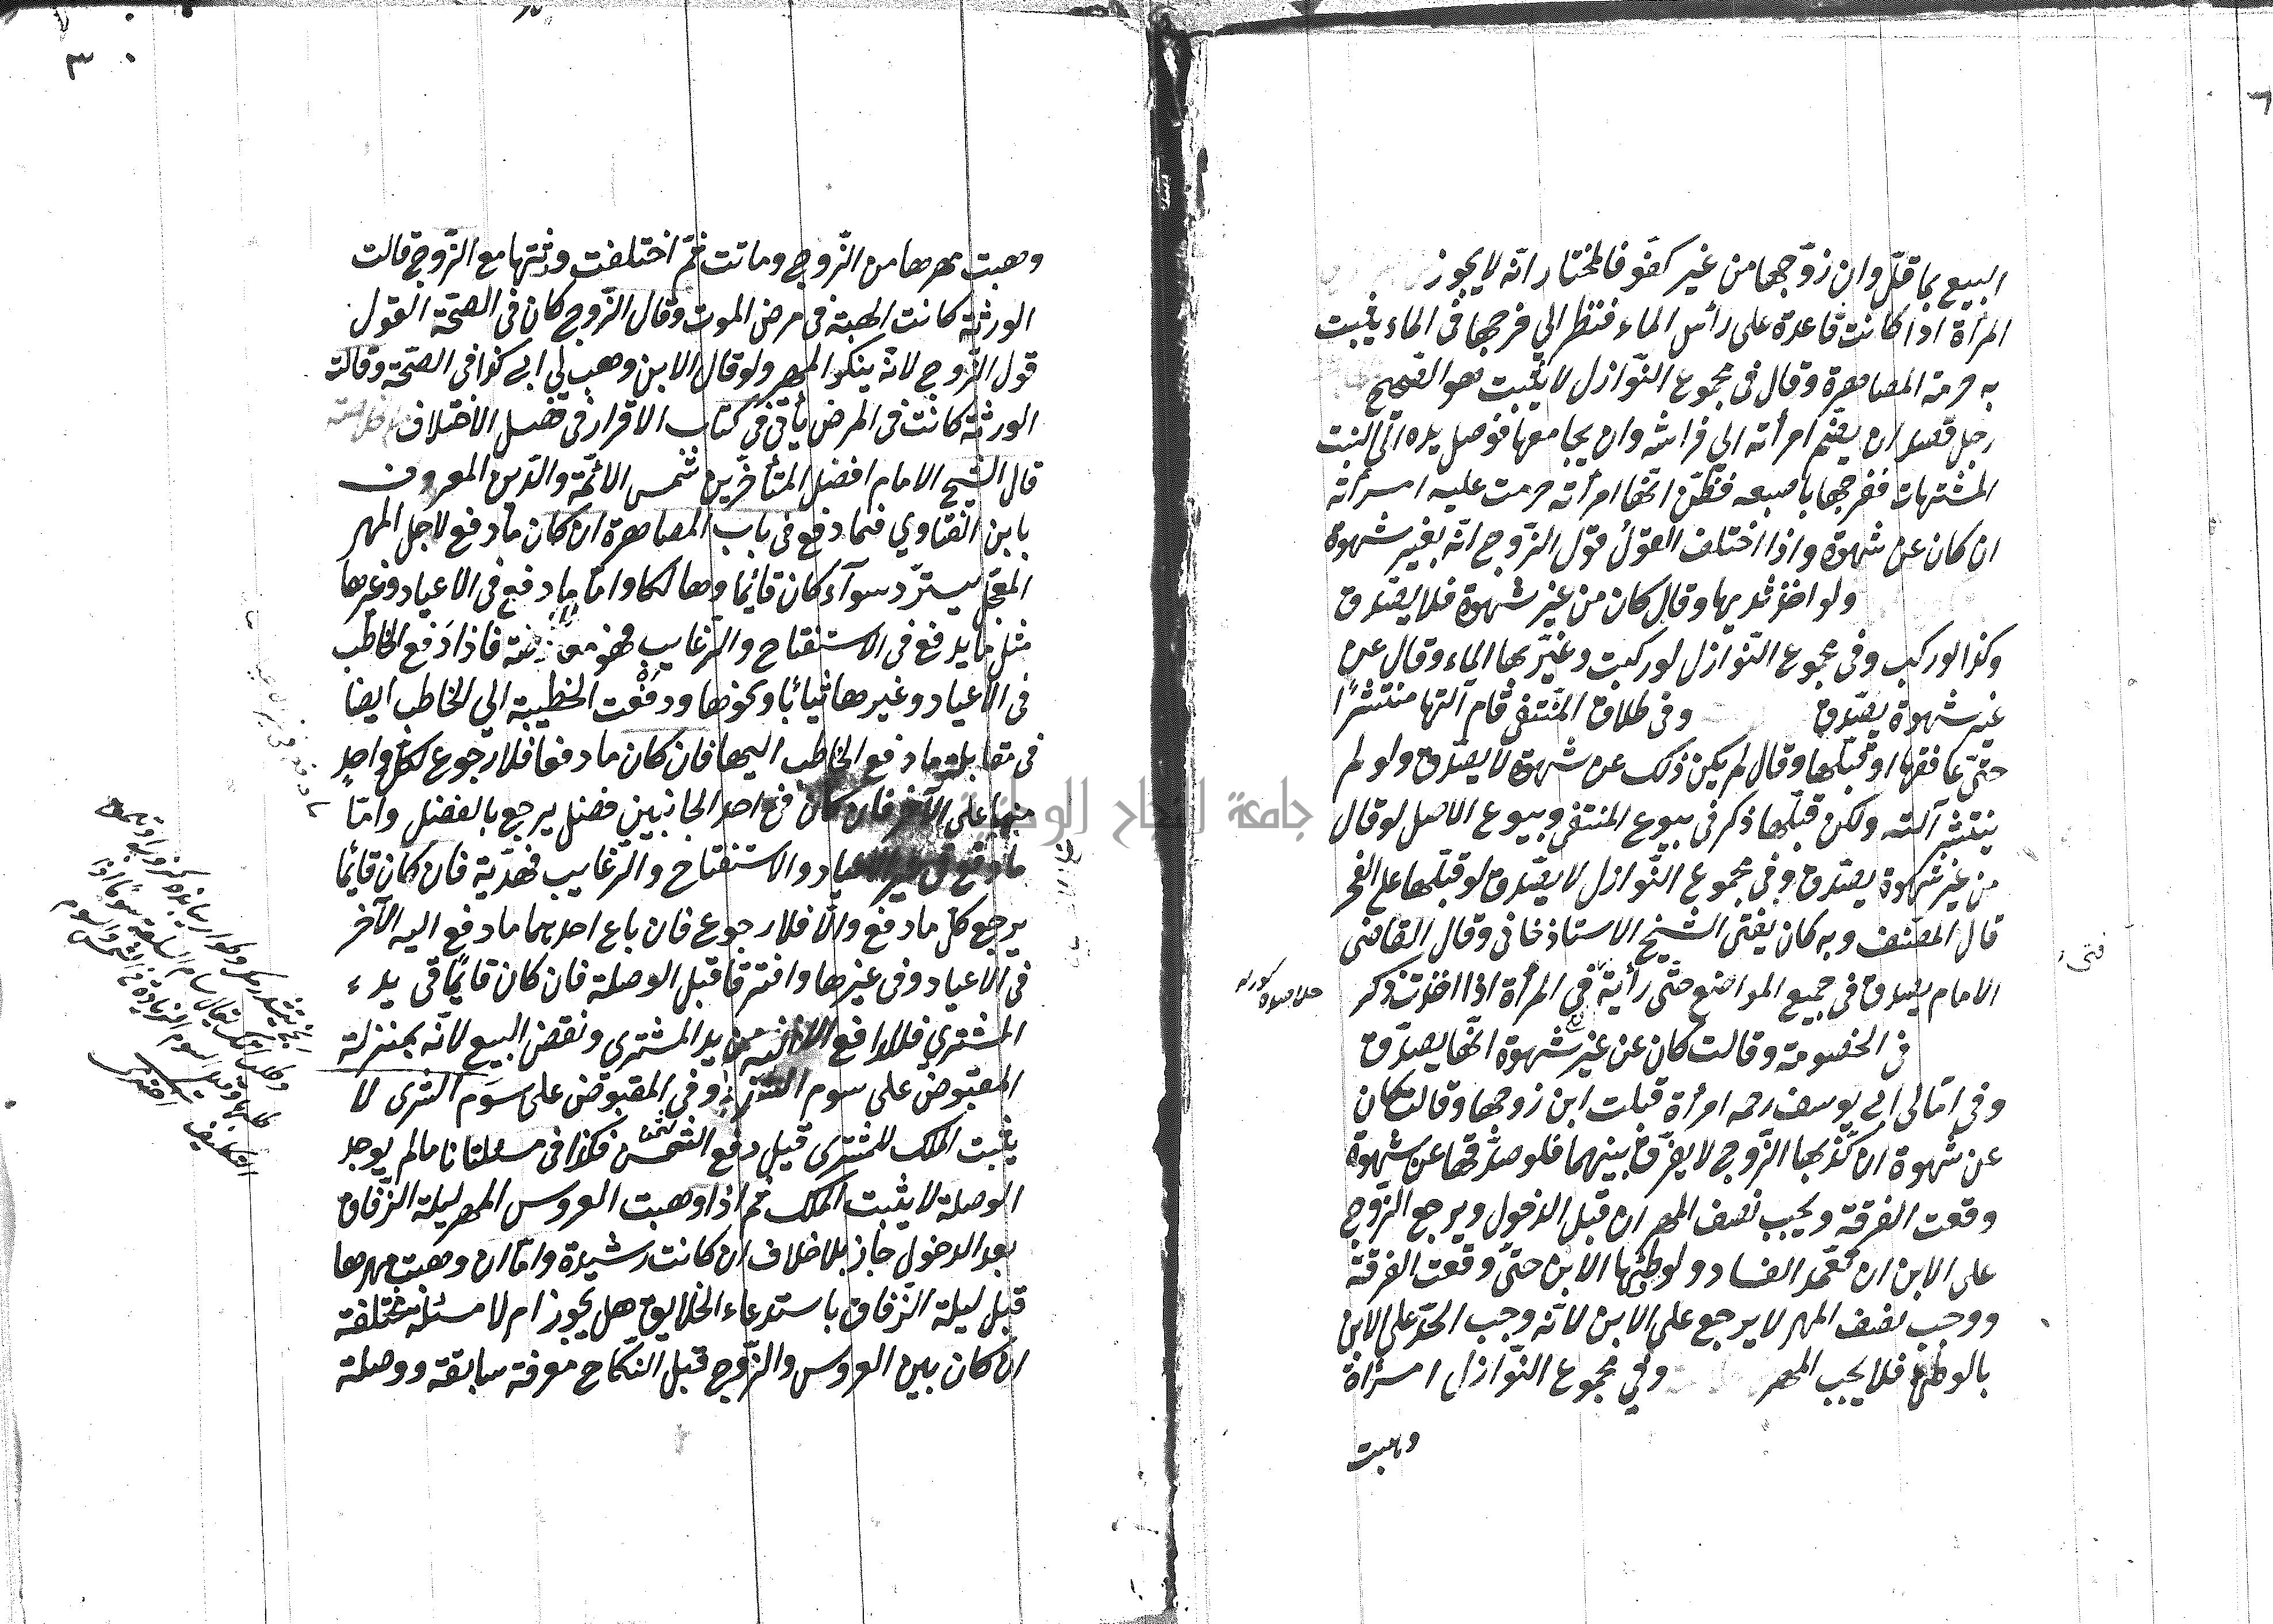 البيع بما قلّ وان زوّجها من غير كفو فالمختار انه لا يجوز
المرأة اذا كانت قاعدة على رأس الماء فنظر الي فرجها في الماء يثبت
به حرمة المصاهرة وقال في مجموع النوازل لا يثبت هو الصحيح
رجل قصد ان يقيم امرأته الي فراشه وان يجامعها فوصل يده الي البنت
المشتهات ففرجها باصبعه فظن انها امرأته حرمت عليه امرأته
ان كان عن شهوة واذا اختلف القول قول الزوج انه بغير شهوة
ولو اخذ ثديها وقال كان من غير شهوة فلا يصدق
وكذا لو ركب وفي مجموع النوازل لو ركبت وعبّر بها الماء وقال عن
غير شهوة يصدق وفي طلاق المنتقي قام آلتها منتشرًا
حتى عانقها او قبلها وقال لم يكن ذلك عن شهوة لا يصدق ولو لم
ينتشر آلته ولكن قبلها ذكر في بيوع المنتقي وبيوع الاصل لو قال
من غير شهوة يصدق وفي مجموع النوازل لا يصدق لو قبلها على الفم
قال المصنف وبه كان يفتي الشيخ الاستاذ خاني وقال القاضي
الامام يصدق في جميع المواضع حتى رأيته في المرأة اذا اخذت ذكر
في الخصومة وقالت كان عن غير شهوة انها يصدق
وفي امالي ابي يوسف رحمه امرأة قبلت ابن زوجها وقالت كان
عن شهوة ان كذبها الزوج لا يفرق بينهما فلو صدقها عن شهوة
وقعت الفرقة ويجب نصف المهر ان قبل الدخول ويرجع الزوج
على الابن ان تعمد الفساد ولو وطئها الابن حتى وقعت الفرقة
ووجب نصف المهر لا يرجع على الابن لانه وجب الحد على الابن
بالوطئ فلا يجب المهر وفي مجموع النوازل امرأة
وهبت
٣٠
وهبت مهرها من الزوج وماتت ثم اختلفت ورثتها مع الزوج قالت
الورثة كانت الهبة في مرض الموت وقال الزوج كان في الصحة القول
قول الزوج لانه ينكر المهر ولو قال الابن وهب لي ابي كذا في الصحة وقالت
الورثة كانت في المرض يأتي في كتاب الاقرار في فصل الاختلاف
قال الشيخ الامام افضل المتأخرين شمس الائمة والدين المعروف
بابن الفتاوي فيما دفع في باب المصاهرة ان كان ما دفع لاجل المهر
المعجل يسترد سوآء كان قائما وهالكا واما ما دفع في الاعياد وغيرها
مثل ما يدفع في الاستفتاح والرغايب فهو فاذا دفع الخاطب
في الاعياد وغيرها ثيابًا ونحوها ودفعت الخطيبة الي الخاطب ايضا
في مقابلة ما دفع الخاطب اليها فان كان ما دفعا فلا رجوع لكل واحدٍ
منها على الآخر فان كان في احد الجانبين فضل يرجع بالفضل واما
ما دفع في غير الاعياد والاستفتاح والرغايب فهدية فان كان قائمًا
يرجع كل ما دفع والا فلا رجوع فان باع احدهما ما دفع اليه الآخر
في الاعياد وفي غيرها وافترقا قبل الوصلة فان كان قائمًا في يده
المشتري فللدافع من يد المشتري ونقض البيع لانه بمنزلة
المقبوض على سوم وفي المقبوض على سوم الشرى لا
يثبت الملك للمشتري قبل دفع الثمن فكذا في مسئلتنا ما لم يوجد
الوصلة لا يثبت الملك ثم اذا وهبت العروس المهر ليلة الزفاف
بعد الدخول جاز بلا خلاف ان كانت رشيدة واما ان وهبت مهرها
قبل ليلة الزفاف باستدعاء الخلايق هل يجوز ام لا مسئلة مختلفة
ان كان بين العروس والزوج قبل النكاح معرفة سابقة ووصلة
جامعة النجاح الوطنية